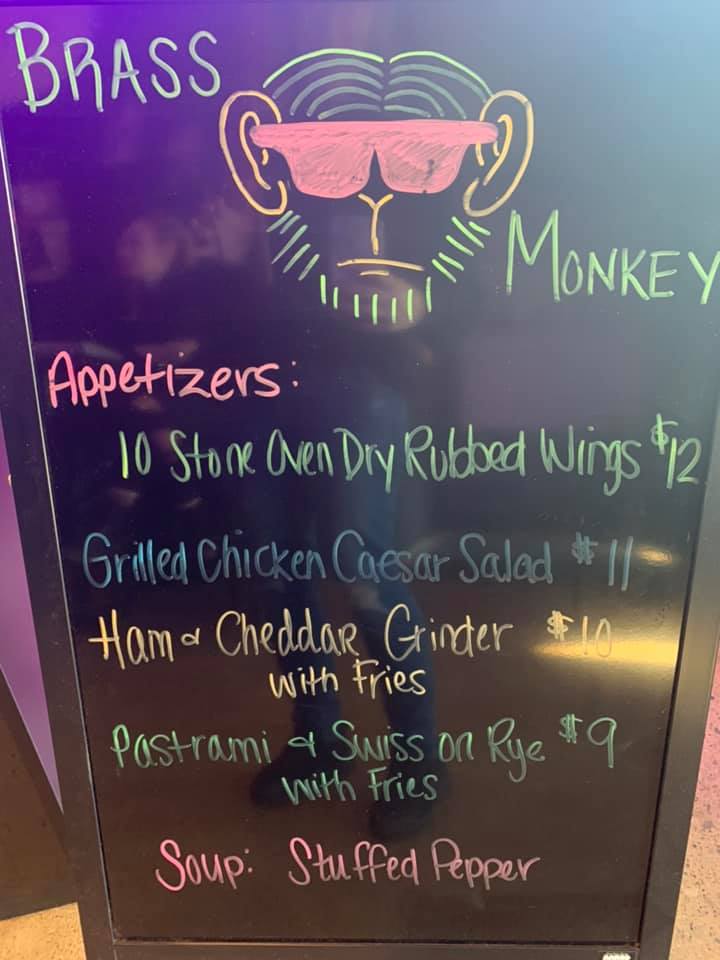 BRASS
MONKEY
Appetizers:
10 Stone Oven Dry Rubbed Wings $12
Grilled Chicken Caesar Salad $11
Ham & Cheddar Grinder $10
with Fries
Pastrami & Swiss on Rye $9
with Fries
Soup: Stuffed Pepper